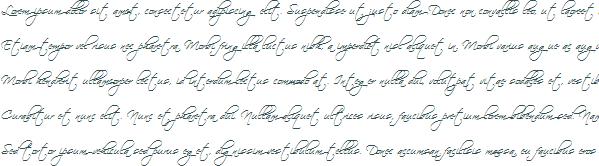 Lorem ipsum dolor sit amet, consectetur adipiscing elit. Suspendisse ut justo diam. Donec non convallis leo, ut laoreet
Etiam tempor vel risus nec pharetra. Morbi fringilla luctus nibh, a imperdiet nisl aliquet in. Morbi varius augue ac aug
Morbi hendrerit ullamcorper lectus, id interdum lectus commodo at. Integer nulla dui, volutpat vitae sodales et, vestib
Curabitur et nunc elit. Nunc et pharetra dui. Nullam aliquet ultrices risus, faucibus pretium lorem bibendum sed. Nam
Sed tortor ipsum, vehicula sed purus eget, dignissim vestibulum tellus. Donec accumsan facilisis massa, eu faucibus eros